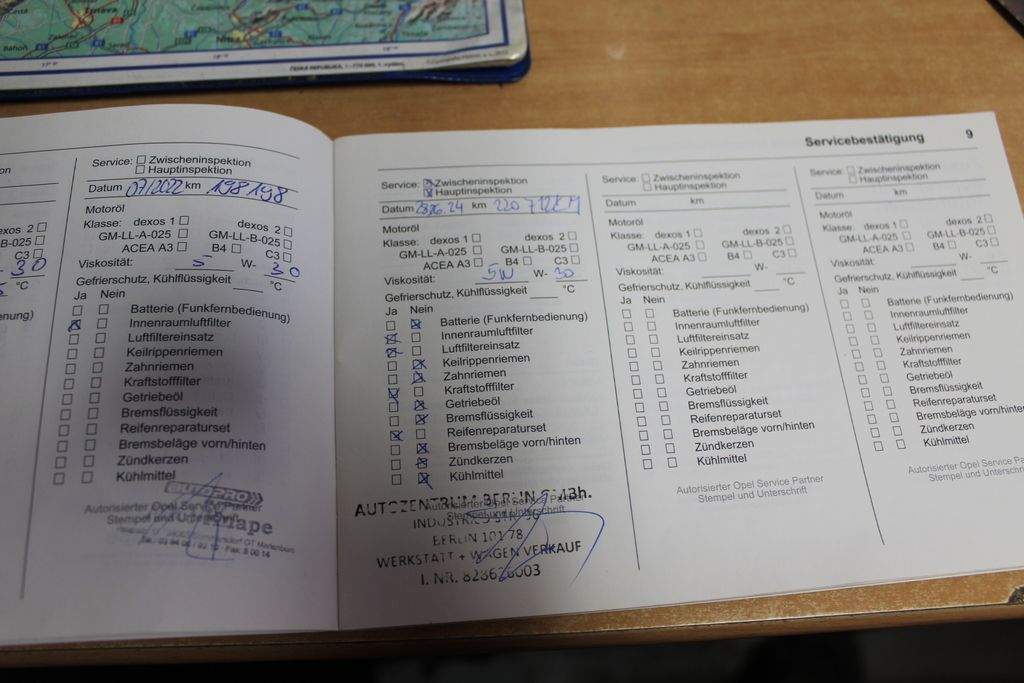 Trnava
Nitra
ČESKÁ REPUBLIKA
Servicebestätigung 9
dexos 2 ☐
LL-B-025 ☐
C3 ☐
30
Service: ☐ Zwischeninspektion
☐ Hauptinspektion
Datum 07/2022 km 198198
Motoröl
Klasse: dexos 1 ☐ dexos 2 ☐
GM-LL-A-025 ☐ GM-LL-B-025 ☐
ACEA A3 ☐ B4 ☐ C3 ☐
Viskosität: 5 W- 30
Gefrierschutz, Kühlflüssigkeit °C
Ja Nein
☐ ☐ Batterie (Funkfernbedienung)
☒ ☐ Innenraumluftfilter
☐ ☐ Luftfiltereinsatz
☐ ☐ Keilrippenriemen
☐ ☐ Zahnriemen
☐ ☐ Kraftstofffilter
☐ ☐ Getriebeöl
☐ ☐ Bremsflüssigkeit
☐ ☐ Reifenreparaturset
☐ ☐ Bremsbeläge vorn/hinten
☐ ☐ Zündkerzen
☐ ☐ Kühlmittel
AUTOPRO
Autorisierter Opel Service Partner
Stempel und Unterschrift
Service: ☒ Zwischeninspektion
☒ Hauptinspektion
Datum km
Motoröl
Klasse: dexos 1 ☐ dexos 2 ☐
GM-LL-A-025 ☐ GM-LL-B-025 ☐
ACEA A3 ☐ B4 ☐ C3 ☐
Viskosität: 5W W- 30
Gefrierschutz, Kühlflüssigkeit °C
Ja Nein
☐ ☒ Batterie (Funkfernbedienung)
☒ ☐ Innenraumluftfilter
☒ ☐ Luftfiltereinsatz
☐ ☒ Keilrippenriemen
☐ ☒ Zahnriemen
☒ ☐ Kraftstofffilter
☐ ☒ Getriebeöl
☐ ☒ Bremsflüssigkeit
☒ ☐ Reifenreparaturset
☐ ☒ Bremsbeläge vorn/hinten
☐ ☒ Zündkerzen
☐ ☒ Kühlmittel
Autorisierter Opel Service Partner
Stempel und Unterschrift
AUTOZENTRUM BERLIN
BERLIN 10178
WERKSTATT + WAGEN VERKAUF
Service: ☐ Zwischeninspektion
☐ Hauptinspektion
Datum km
Motoröl
Klasse: dexos 1 ☐ dexos 2 ☐
GM-LL-A-025 ☐ GM-LL-B-025 ☐
ACEA A3 ☐ B4 ☐ C3 ☐
Viskosität: W-
Gefrierschutz, Kühlflüssigkeit °C
Ja Nein
☐ ☐ Batterie (Funkfernbedienung)
☐ ☐ Innenraumluftfilter
☐ ☐ Luftfiltereinsatz
☐ ☐ Keilrippenriemen
☐ ☐ Zahnriemen
☐ ☐ Kraftstofffilter
☐ ☐ Getriebeöl
☐ ☐ Bremsflüssigkeit
☐ ☐ Reifenreparaturset
☐ ☐ Bremsbeläge vorn/hinten
☐ ☐ Zündkerzen
☐ ☐ Kühlmittel
Autorisierter Opel Service Partner
Stempel und Unterschrift
Service: ☐ Zwischeninspektion
☐ Hauptinspektion
Datum km
Motoröl
Klasse: dexos 1 ☐ dexos 2 ☐
GM-LL-A-025 ☐ GM-LL-B-025 ☐
ACEA A3 ☐ B4 ☐ C3 ☐
Viskosität: W-
Gefrierschutz, Kühlflüssigkeit °C
Ja Nein
☐ ☐ Batterie (Funkfernbedienung)
☐ ☐ Innenraumluftfilter
☐ ☐ Luftfiltereinsatz
☐ ☐ Keilrippenriemen
☐ ☐ Zahnriemen
☐ ☐ Kraftstofffilter
☐ ☐ Getriebeöl
☐ ☐ Bremsflüssigkeit
☐ ☐ Reifenreparaturset
☐ ☐ Bremsbeläge vorn/hinten
☐ ☐ Zündkerzen
☐ ☐ Kühlmittel
Autorisierter Opel Service
Stempel und Unterschrift